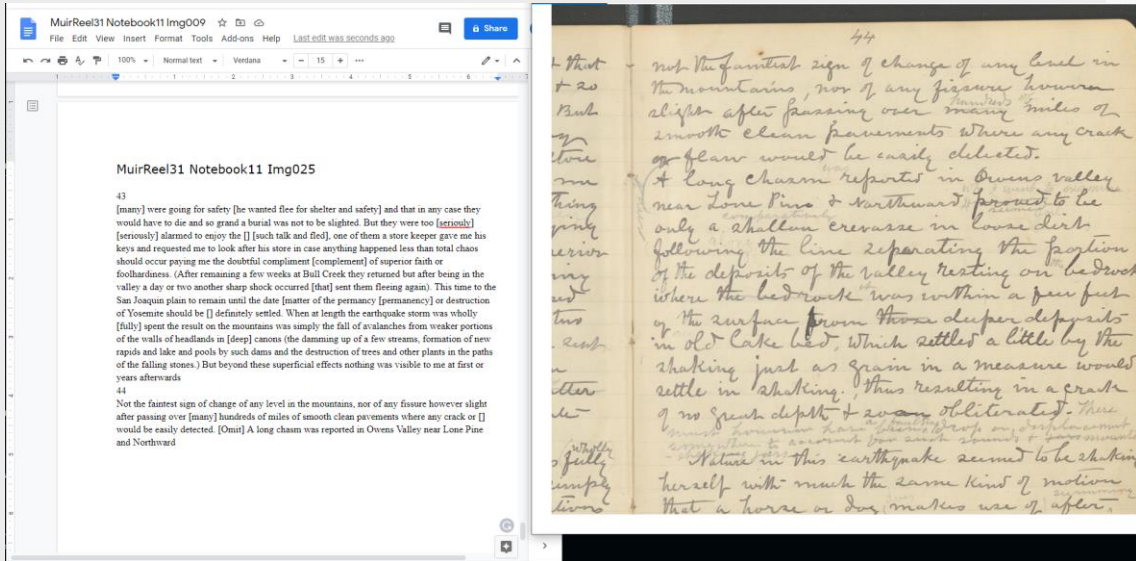 MuirReel31 Notebook11 Img009
File Edit View Insert Format Tools Add-ons Help Last edit was seconds ago
Share
100% Normal text Verdana 15
1 2 3 4 5 6
MuirReel31 Notebook11 Img025
43
[many] were going for safety [he wanted flee for shelter and safety] and that in any case they
would have to die and so grand a burial was not to be slighted. But they were too [seriouly]
[seriously] alarmed to enjoy the [] [such talk and fled], one of them a store keeper gave me his
keys and requested me to look after his store in case anything happened less than total chaos
should occur paying me the doubtful compliment [complement] of superior faith or
foolhardiness. (After remaining a few weeks at Bull Creek they returned but after being in the
valley a day or two another sharp shock occurred [that] sent them fleeing again). This time to the
San Joaquin plain to remain until the date [matter of the permancy [permanency] or destruction
of Yosemite should be [] definitely settled. When at length the earthquake storm was wholly
[fully] spent the result on the mountains was simply the fall of avalanches from weaker portions
of the walls of headlands in [deep] canons (the damming up of a few streams, formation of new
rapids and lake and pools by such dams and the destruction of trees and other plants in the paths
of the falling stones.) But beyond these superficial effects nothing was visible to me at first or
years afterwards
44
Not the faintest sign of change of any level in the mountains, nor of any fissure however slight
after passing over [many] hundreds of miles of smooth clean pavements where any crack or []
would be easily detected. [Omit] A long chasm was reported in Owens Valley near Lone Pine
and Northward
44
not the faintest sign of change of any level in
the mountains, nor of any fissure however
hundreds of
slight after passing over many miles of
smooth clean pavements where any crack
or flaw would be easily detected.
was
A long chasm reported in Owens valley
near Lone Pine & Northward proved to be
seemed
comparatively
only a shallow crevasse in loose dirt
following the line separating the portion
of the deposits of the valley resting on bedrock
where the bedrock was within a few feet
of the surface from those deeper deposits
in old lake bed, which settled a little by the
shaking just as grain in a measure would
settle in shaking, thus resulting in a crack
of no great depth & soon obliterated. There
must however have been
somewhere to account for such sounds &
Nature in this earthquake seemed to be shaking
herself with much the same kind of motion
that a horse or dog makes use of after
swimming
that
& so
But
me
sent
wholly
fully
simply